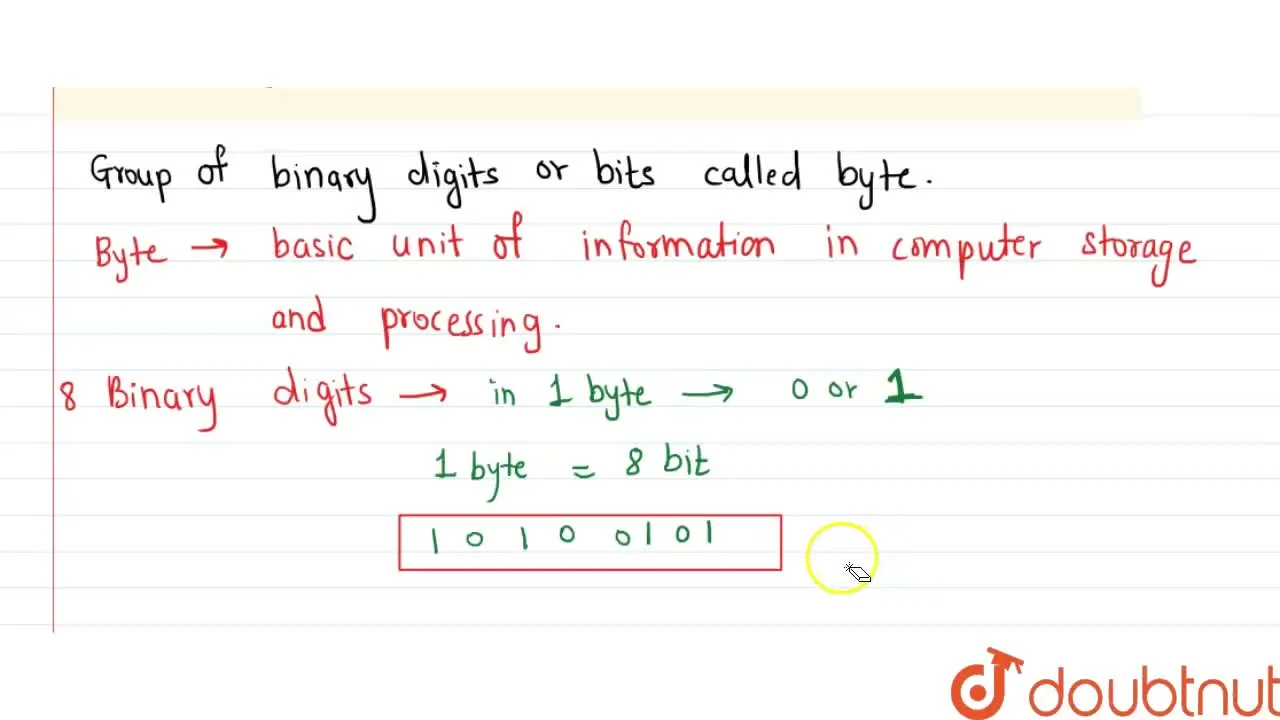 Group of binary digits or bits called byte.
Byte → basic unit of information in computer storage
and processing.
8 Binary digits → in 1 byte → 0 or 1
1 byte = 8 bit
1 0 1 0 0 1 0 1
doubtnut